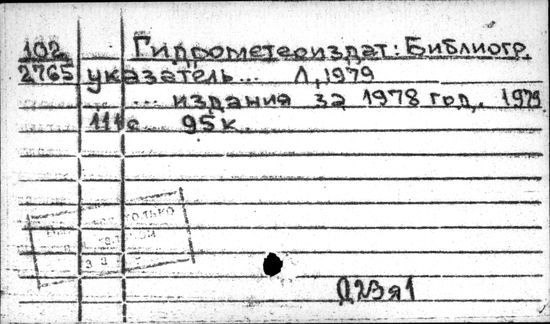 102 Гидрометеоиздат: Библиогр.
2765 указатель... Л, 1979
... издания за 1978 год. 1979
111 с 95 к.
только
Д23я1